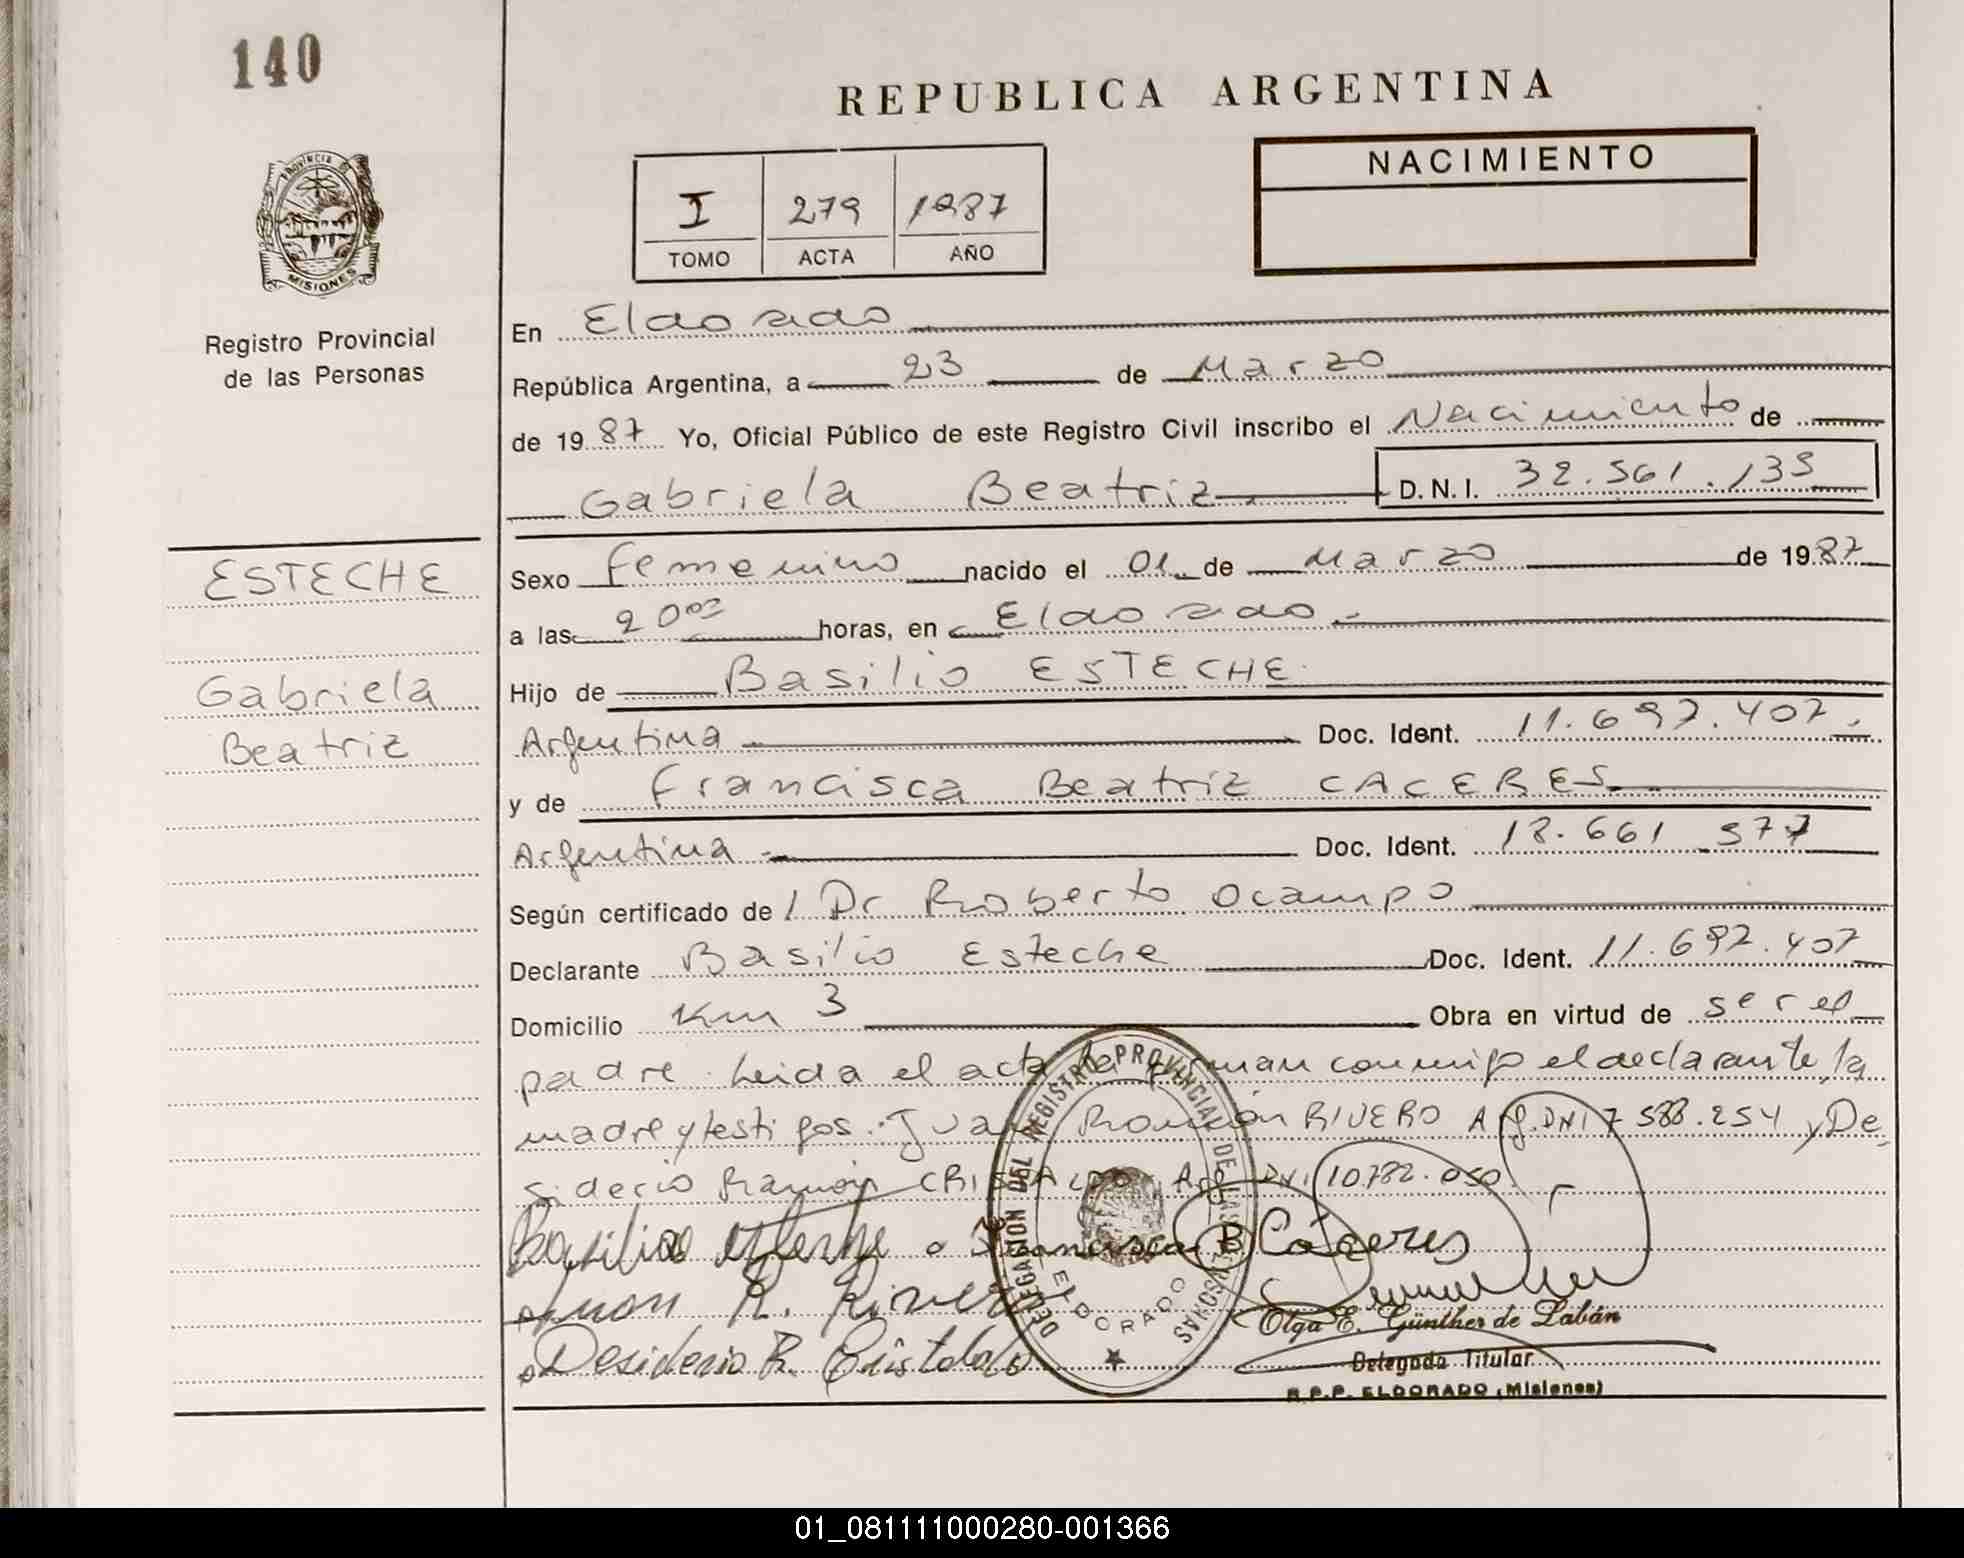 140
REPUBLICA ARGENTINA
PROVINCIA DE
MISIONES
Registro Provincial
de las Personas
I 279 1987
TOMO ACTA AÑO
NACIMIENTO
En Eldorado
República Argentina, a 23 de Marzo
de 1987 Yo, Oficial Público de este Registro Civil inscribo el Nacimiento de
Gabriela Beatriz D.N.I. 32.561.135
ESTECHE
Gabriela
Beatriz
Sexo femenino nacido el 01 de Marzo de 1987
a las 20⁰⁰ horas, en Eldorado
Hijo de Basilio ESTECHE
Argentina Doc. Ident. 11.692.407
y de Francisca Beatriz CACERES
Argentina Doc. Ident. 18.661 577
Según certificado de / Dr Roberto Ocampo
Declarante Basilio Esteche Doc. Ident. 11.692.407
Domicilio Km 3 Obra en virtud de ser el
padre. Leida el acta la firman conmigo el declarante, la
madre y testigos: Juan Ramón RIVERO Arg. DNI 7 588.254 y De
siderio Ramón CRISTALDO Arg DNI 10.782.050
Basilio esteche Francisca B Cáceres
Juan R. Rivero
Desiderio R. Cristaldo
DELEGACION DEL REGISTRO PROVINCIAL DE LAS PERSONAS
ELDORADO
Olga E. Günther de Labán
Delegada Titular
R.P.P. ELDORADO (Misiones)
01_081111000280-001366